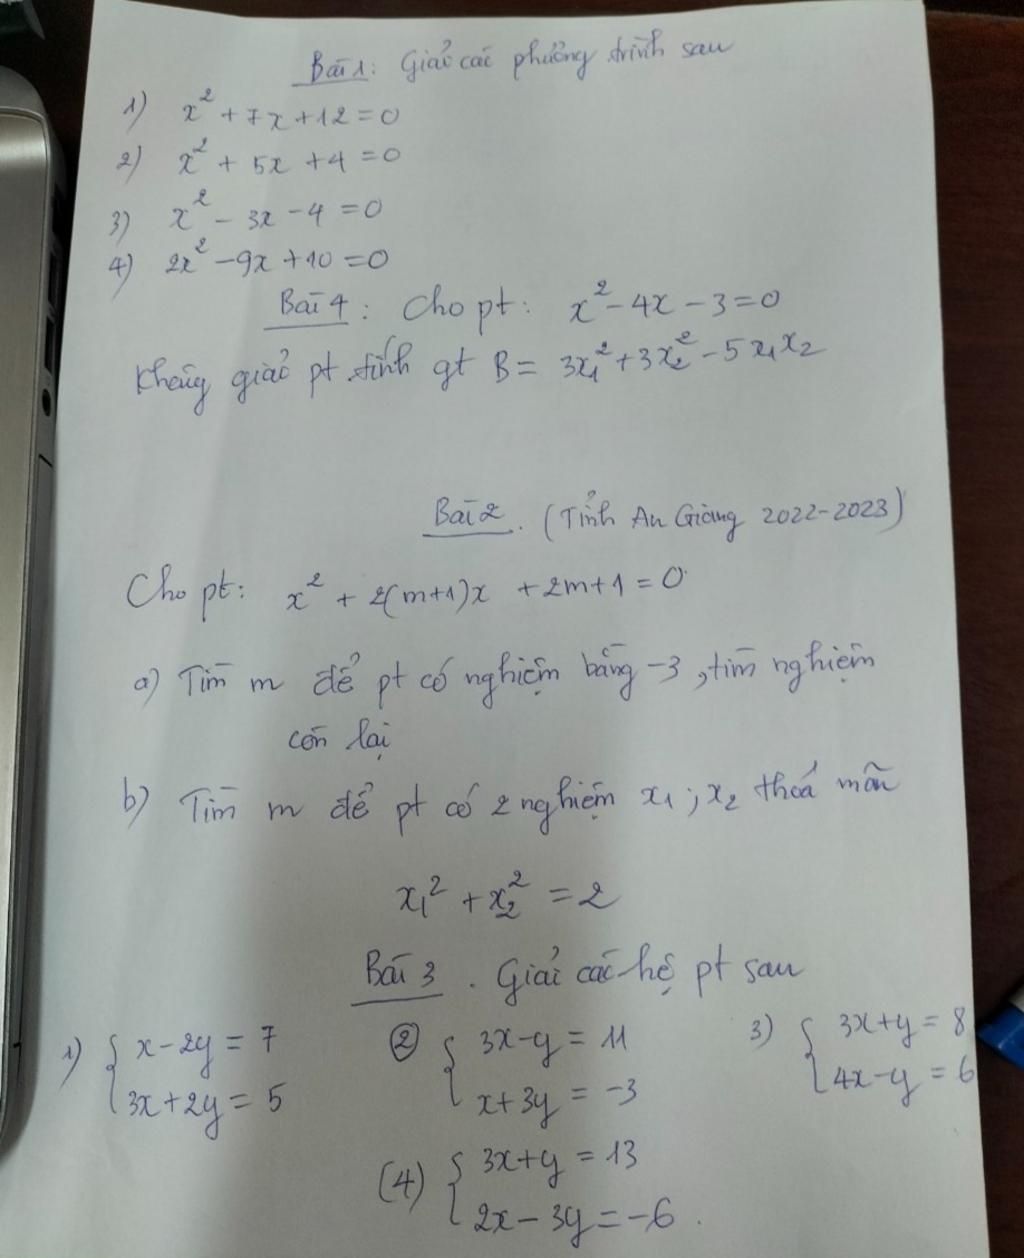 Bài 1: Giải các phương trình sau
1) x² + 7x + 12 = 0
2) x² + 5x + 4 = 0
3) x² - 3x - 4 = 0
4) 2x² - 9x + 10 = 0
Bài 4: Cho pt: x² - 4x - 3 = 0
Không giải pt tính gt B = 3x₁² + 3x₂² - 5x₁x₂
Bài 2. (Tỉnh An Giang 2022-2023)
Cho pt: x² + 2(m+1)x + 2m+1 = 0
a) Tìm m để pt có nghiệm bằng -3, tìm nghiệm
còn lại
b) Tìm m để pt có 2 nghiệm x₁; x₂ thoả mãn
x₁² + x₂² = 2
Bài 3. Giải các hệ pt sau
1) { x - 2y = 7 ② { 3x - y = 11 3) { 3x + y = 8
3x + 2y = 5 x + 3y = -3 4x - y = 6
(4) { 3x + y = 13
2x - 3y = -6.